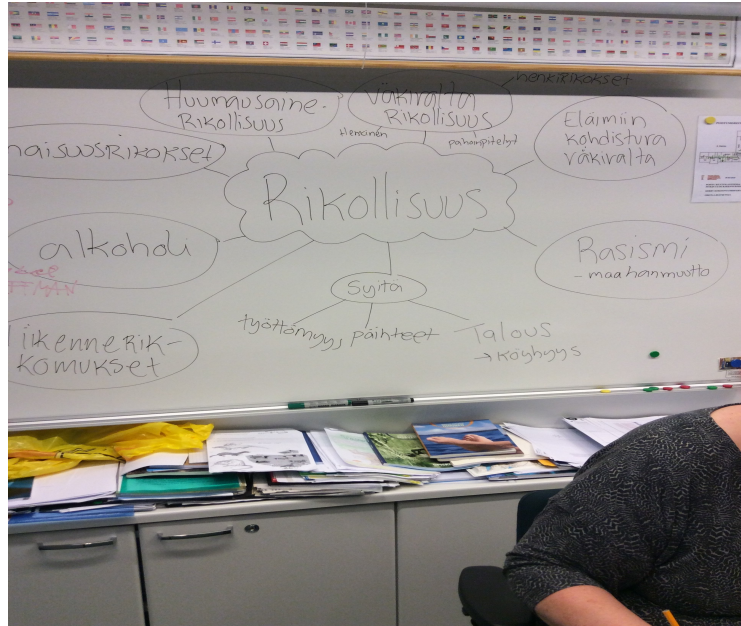 henkirikokset
Huumausaine-
Rikollisuus
väkivalta
Rikollisuus
Henkinen
pahoinpitelyt
Eläimiin
kohdistuva
väkivalta
naisuusRikokset
Rikollisuus
alkoholi
Rasismi
- maahanmuutto
Syitä
työttömyys
päihteet
Talous
→ Köyhyys
liikenneRik-
komukset